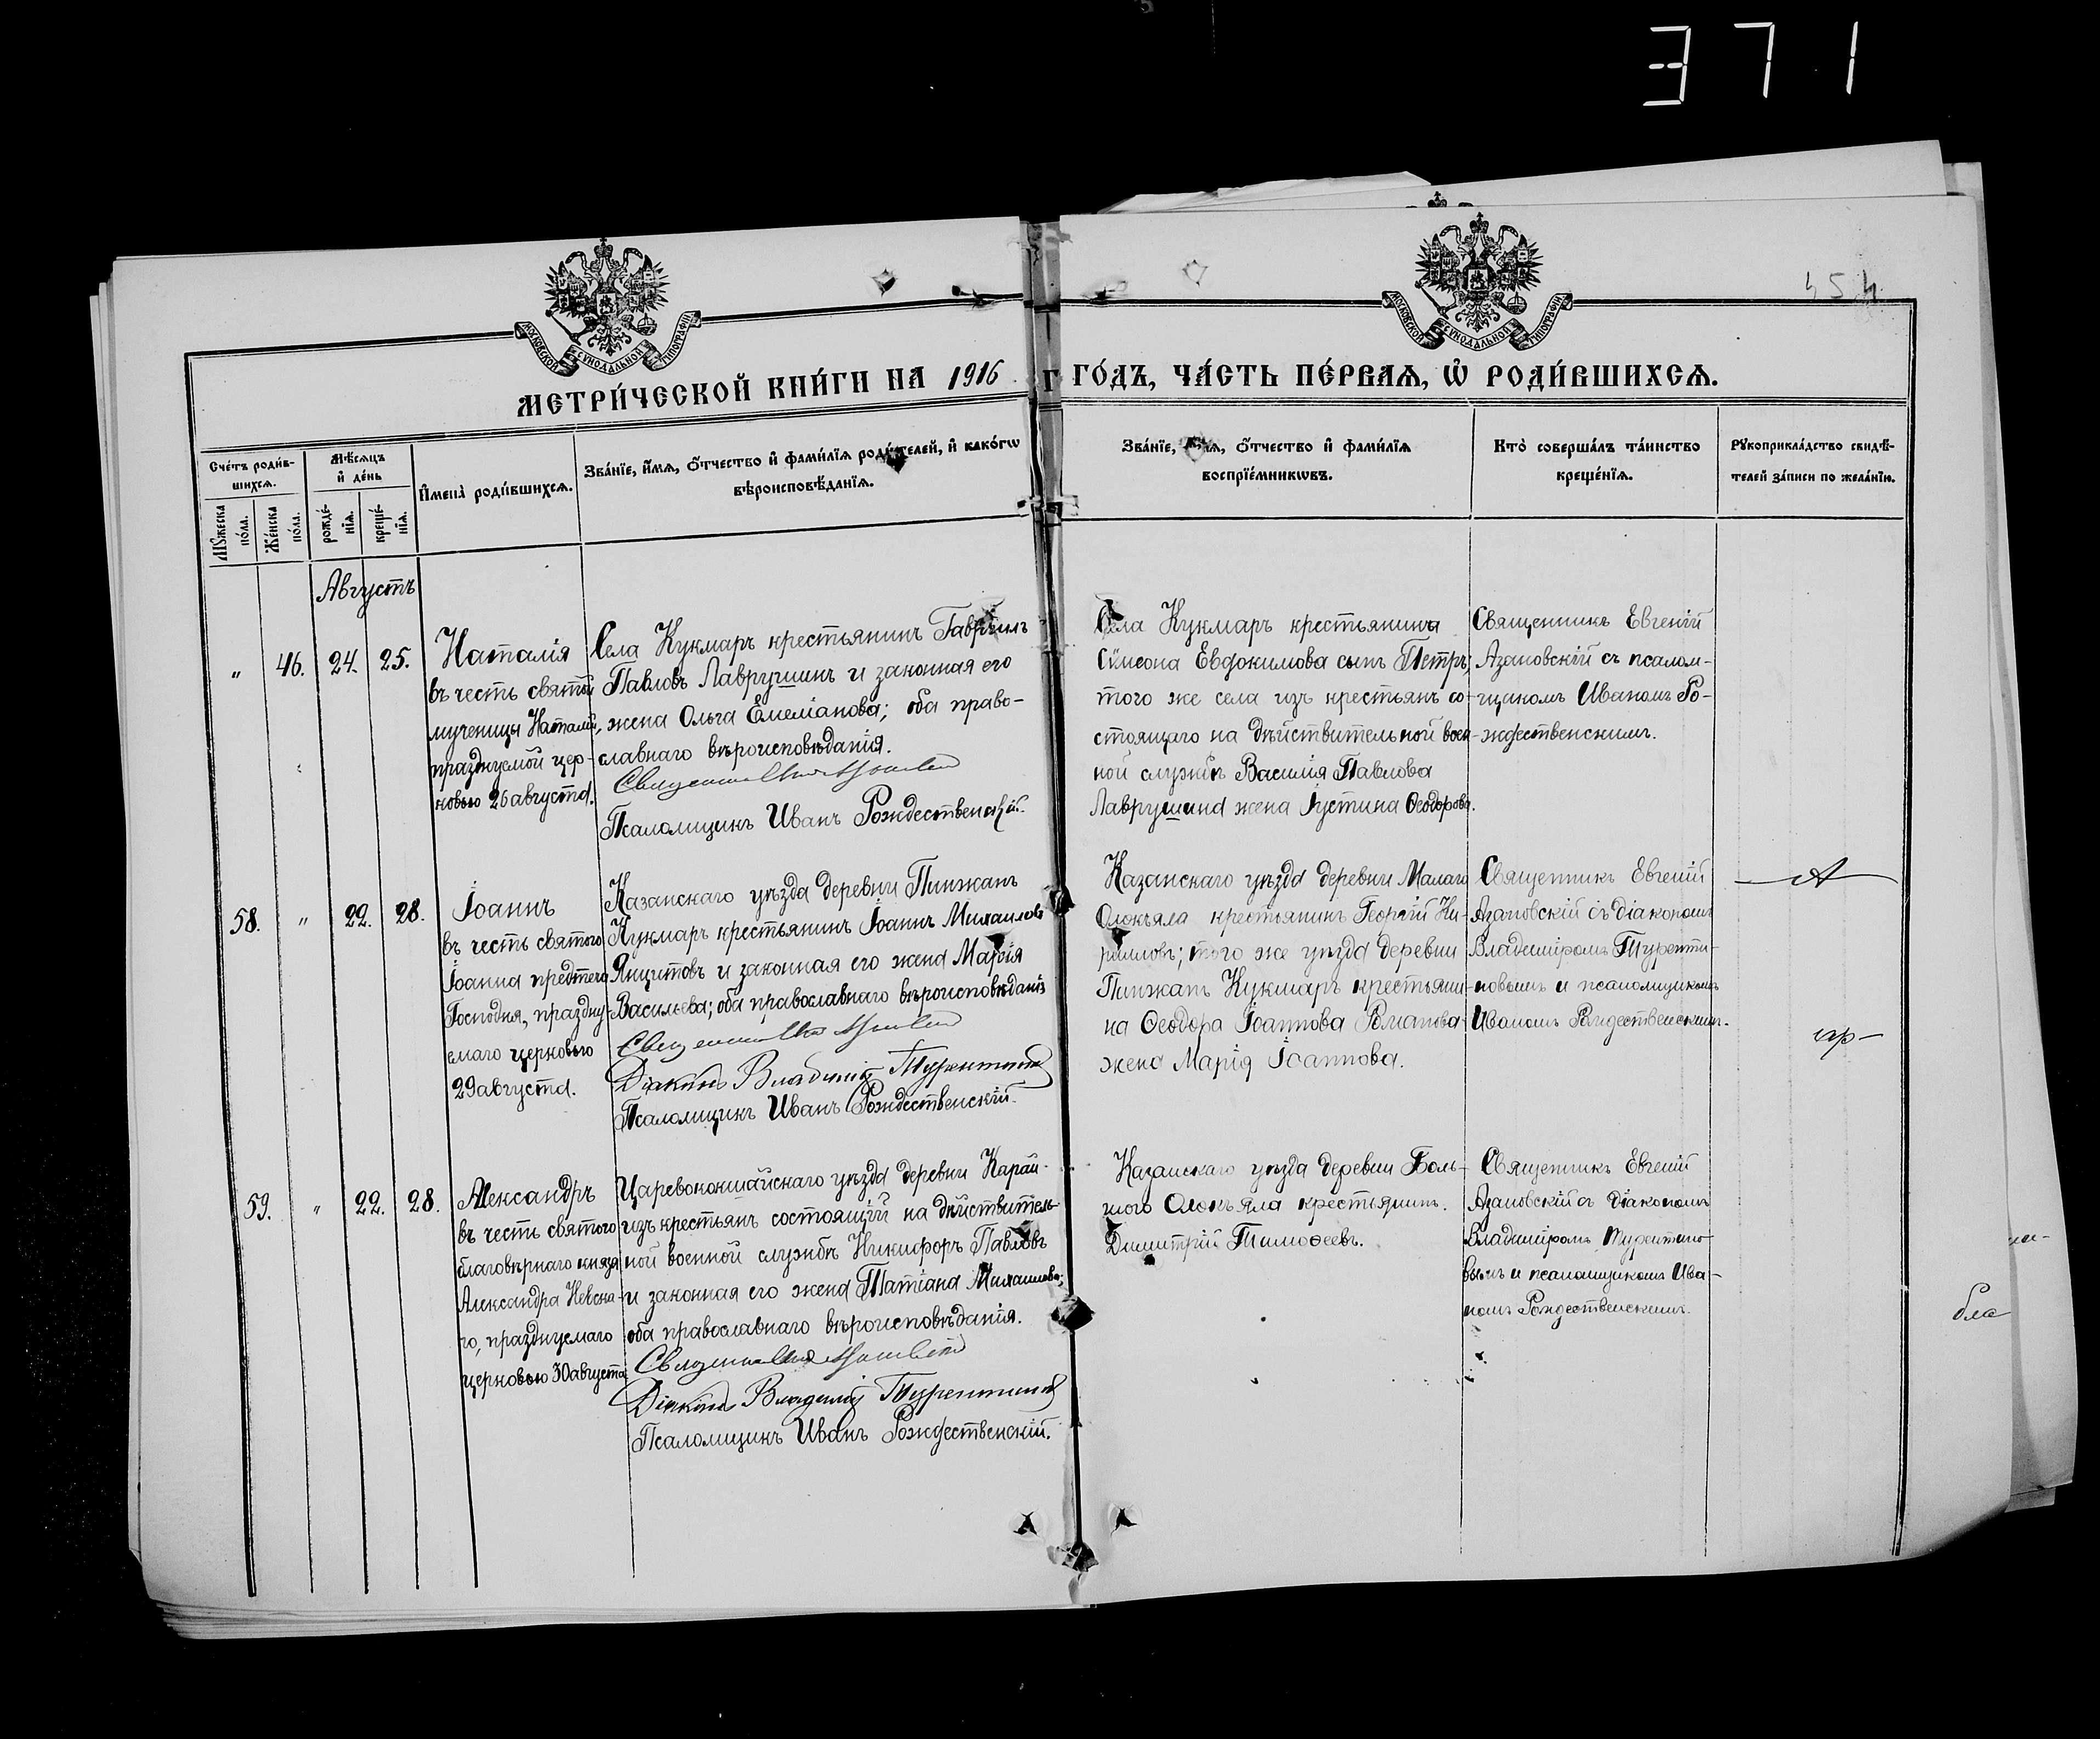 371
454
МОСКОВСКОЙ СѴНОДАЛЬНОЙ ТИПОГРАФІИ
МОСКОВСКОЙ СѴНОДАЛЬНОЙ ТИПОГРАФІИ
МЕТРИ́ЧЕСКОЙ КНИ́ГИ НА 1916 Г
ГО́ДЪ, ЧА́СТЬ ПЕ́РВАѦ, Ѡ҆ РОДИ́ВШИХСѦ.
Сче́тъ роди́в-
шихсѧ.
Мꙋ́жеска
по́ла.
Же́нска
по́ла.
Мѣ́сѧцъ
и҆ де́нь
рожде́-
нїѧ.
креще́-
нїѧ.
И҆мена̀ роди́вшихсѧ.
Зва́нїе, и҆́мѧ, ѻ҆́тчество и҆ фами́лїѧ роди́телей, и҆ како́гѡ
вѣроисповѣ́данїѧ.
Зва́нїе, и҆́мѧ, ѻ҆́тчество и҆ фами́лїѧ
воспрїе́мникѡвъ.
Кто̀ соверша́лъ та́инство
креще́нїѧ.
Рꙋкоприкла́дство свидѣ́-
телей за́писи по жела́нїю.
Августъ
" 46. 24. 25.
Наталія
въ честь святой
мученицы Наталіи,
празднуемой цер-
ковью 26 августа.
Села Кукмаръ крестьянинъ Гавріилъ
Павловъ Лаврушинъ и законная его
жена Ольга Емеліанова; оба право-
славнаго вѣроисповѣданія.
Псаломщикъ Иванъ Рождественскій.
Села Кукмаръ крестьянина
Симеона Евдокимова сынъ Петръ;
того же села изъ крестьянъ со-
стоящаго на дѣйствительной воен-
ной службѣ Василія Павлова
Лаврушина жена Іустина Ѳеодорова.
Священникъ Евгеній
Азановскій съ псалом-
щикомъ Иваномъ Ро-
ждественскимъ.
58. " 22. 28.
Іоаннъ
въ честь святого
Іоанна предтечи
Господня, праздну-
емаго церковью
29 августа.
Казанскаго уѣзда деревни Пинжанъ
Кукмаръ крестьянинъ Іоаннъ Михаиловъ
Янцитовъ и законная его жена Марія
Васильева; оба православнаго вѣроисповѣданія
Діаконъ Владиміръ Турентиновъ
Псаломщикъ Иванъ Рождественскій.
Казанскаго уѣзда деревни Малаго
Олокъяла крестьянинъ Георгій Ки-
рилловъ; того же уѣзда деревни
Пинжанъ Кукмаръ крестьяни-
на Ѳеодора Іоаннова Романова
жена Марія Іоаннова.
Священникъ Евгеній
Азановскій съ діакономъ
Владиміромъ Туренти-
новымъ и псаломщикомъ
Иваномъ Рождественскимъ.
59. " 22. 28.
Александръ
въ честь святого
благовѣрнаго князя
Александра Невска-
го, празднуемаго
церковью 30 августа
Царевококшайскаго уѣзда деревни Карай-
изъ крестьянъ состоящій на дѣйствитель-
ной военной службѣ Никифоръ Павловъ
и законная его жена Татіана Михаилова;
оба православнаго вѣроисповѣданія.
Діаконъ Владиміръ Турентиновъ
Псаломщикъ Иванъ Рождественскій.
Казанскаго уѣзда деревни Боль-
шого Олокъяла крестьянинъ
Димитрій Тимоѳеевъ.
Священникъ Евгеній
Азановскій съ діакономъ
Владиміромъ Турентино-
вымъ и псаломщикомъ Ива-
номъ Рождественскимъ.